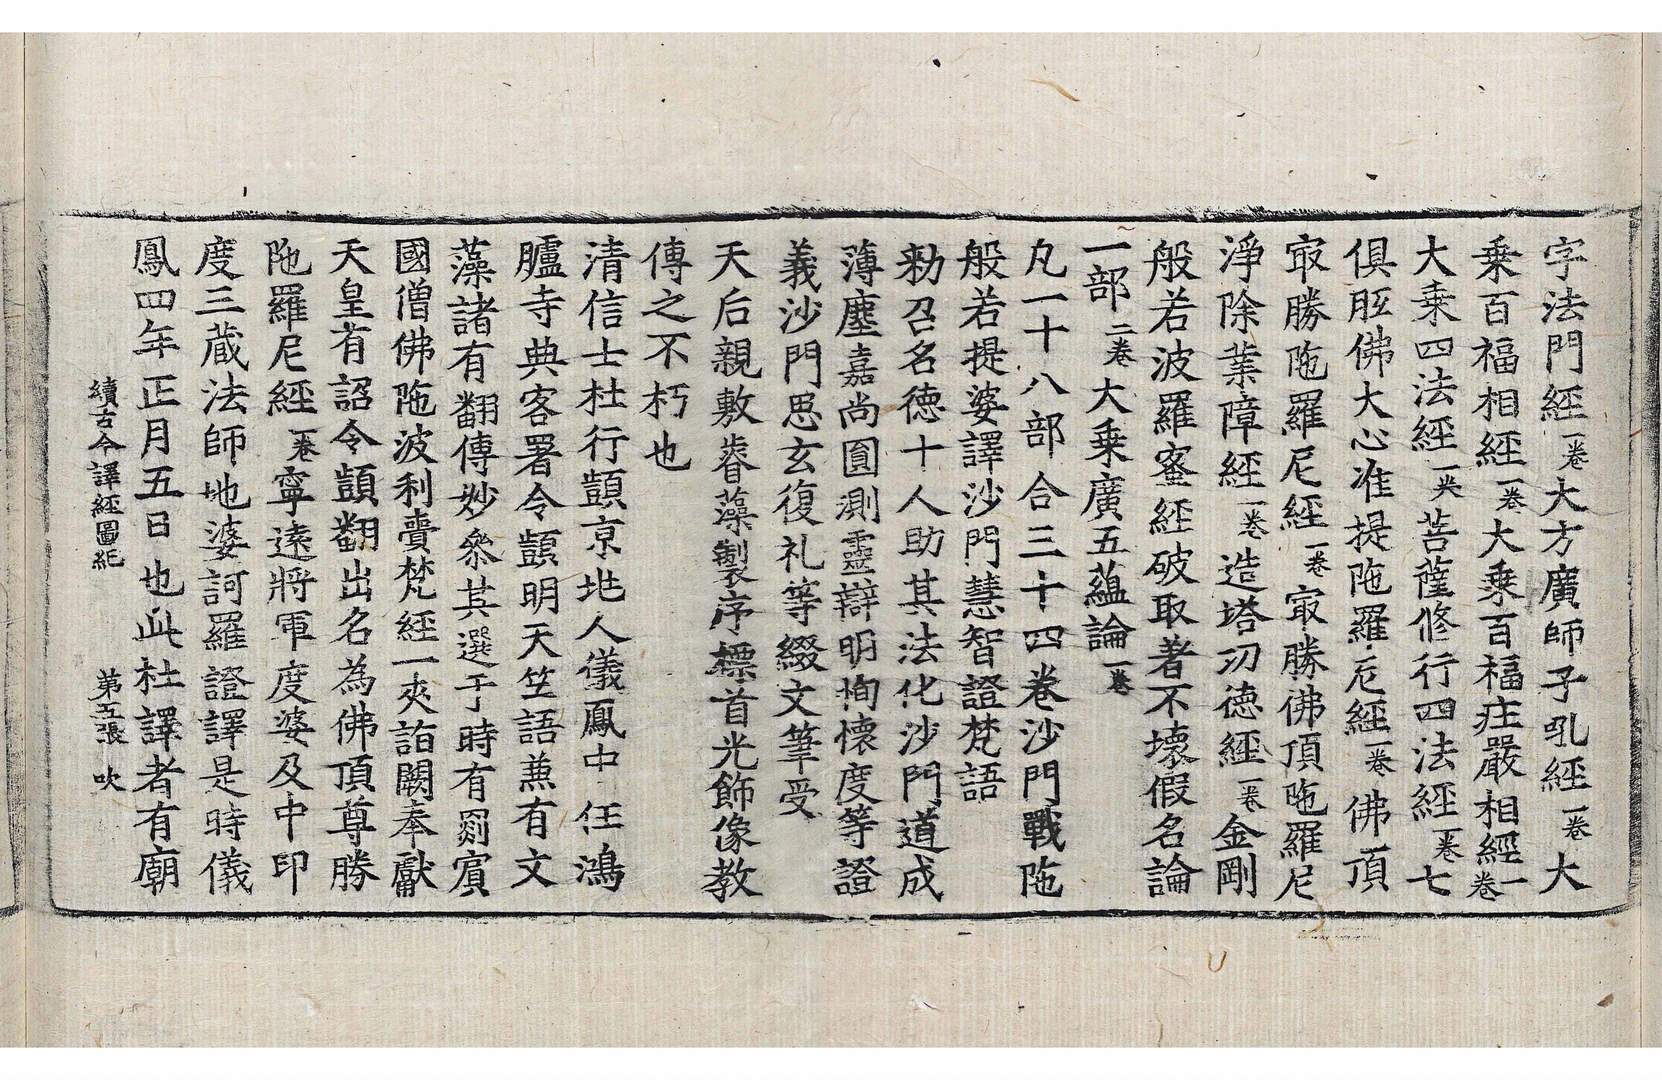 字法門經一卷大方廣師子吼經一卷大
乗百福相經一卷大乗百福庄嚴相經一卷
大乗四法經一卷菩薩修行四法經一卷七
俱胝佛大心准提陁羅尼經一卷佛頂
㝡勝陁羅尼經一卷㝡勝佛頂陁羅尼
淨除業障經一卷造塔功德經一卷金剛
般若波羅蜜經破取著不壞假名論
一部二卷大乗廣五蘊論一卷
凡一十八部合三十四卷沙門戰陁
般若提婆譯沙門慧智證梵語
勑召名德十人助其法化沙門道成
薄塵嘉尚圓測靈辯明恂懷度等證
義沙門思玄復礼等綴文筆受
天后親敷睿藻製序標首光飾像教
傳之不朽也
清信士杜行顗京地人儀鳳中任鴻
臚寺典客署令顗明天竺語兼有文
藻諸有翻傳妙叅其選于時有罽賓
國僧佛陁波利賷梵經一夾詣闕奉獻
天皇有詔令顗翻出名為佛頂尊勝
陁羅尼經一卷寧遠將軍度婆及中印
度三蔵法師地婆訶羅證譯是時儀
鳳四年正月五日也此杜譯者有廟
續古今譯經圖紀 第五張 吹